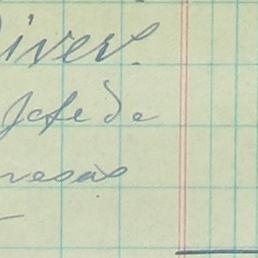 River.
Jefe de
resas